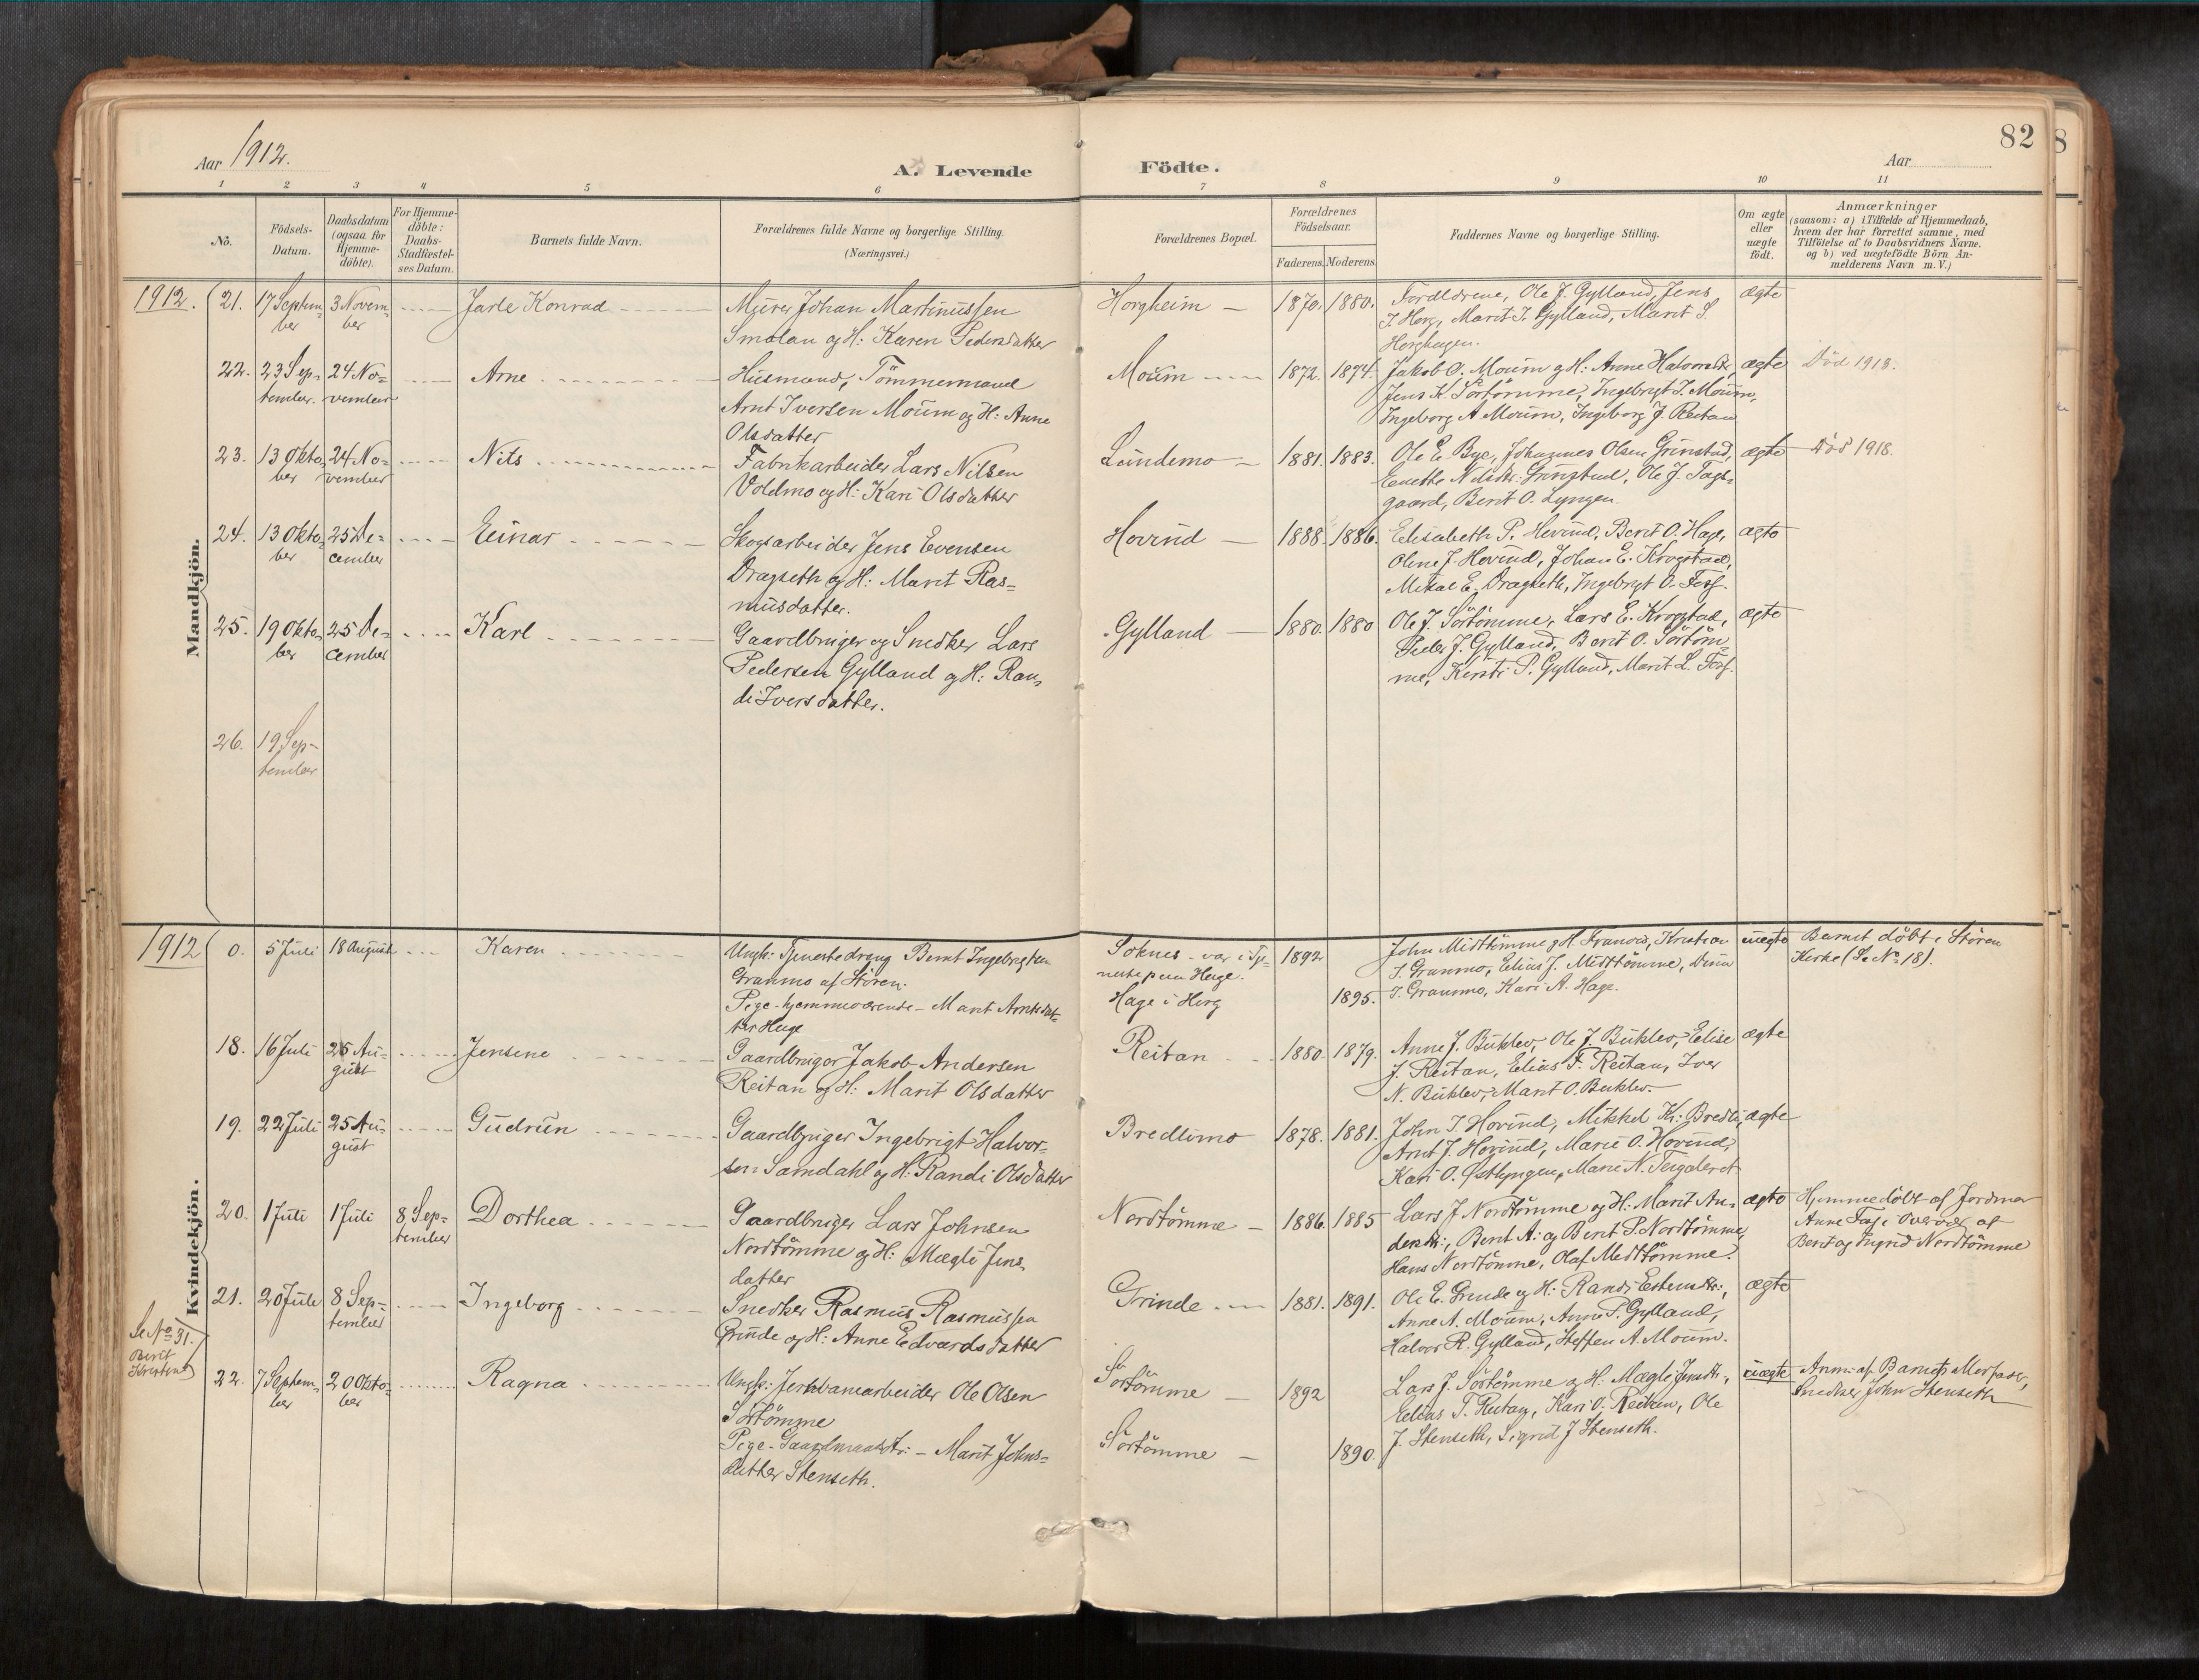 82
8
Aar 1912.
A. Levende
Födte.
Aar
1
2
3
4
5
6
7
8
9
10
11
No.
Födsels-
Datum.
Daabsdatum
(ogsaa for
Hjemme-
döbte).
For Hjemme-
döbte:
Daabs-
Stadfæstel-
ses Datum.
Barnets fulde Navn.
Forældrenes fulde Navne og borgerlige Stilling.
(Næringsvei.)
Forældrenes Bopæl.
Forældrenes
Födselsaar.
Faderens.
Moderens.
Faddernes Navne og borgerlige Stilling.
Om ægte
eller
uægte
födt.
Anmærkninger
(saasom: a) i Tilfælde af Hjemmedaab,
hvem der har forrettet samme, med
Tilföielse af to Daabsvidners Navne.
og b) ved uægtefödte Börn An-
melderens Navn m. V.)
Mandkjön.
1912.
21.
17 Septem-
ber
3 Novem-
ber
Jarle Konrad
Murer Johan Martinussen
Smolan og H: Karen Pedersdatter
Horgheim
1870.
1880.
Forældrene, Ole J. Gylland, Jens
J. Horg, Marit J. Gylland, Marit S.
Horghagen.
ægte
22.
23 Sep-
tember.
24 No-
vember
Arne
Husmand, Tömmermand
Arnt Iversen Moum og H: Anne
Olsdatter
Moum
1872.
1874.
Jakob O. Moum og H: Anne Halvorsdtr,
Jens K. Sörtömme, Ingebrigt J. Moum,
Ingeborg A Moum, Ingeborg J. Reitan
ægte
Död 1913.
23.
13 Okto-
ber
24 No-
vember
Nils
Fabrikarbeider Lars Nilsen
Voldmo og H: Kari Olsdatter
Lundemo
1881.
1883.
Ole E. Bye, Johannes Olsen Grinstad,
Nilsdtr. Grinstad, Ole J. Fags-
gaard, Berit O. Lyngen.
ægte
Död 1918.
24.
13 Okto-
ber
25 De-
cember
Einar
Skogsarbeider Jens Evensen
Dragseth og H: Marit Ras-
musdatter.
Hovind
1888.
1886.
Elisabeth P. Hovind, Berit O. Hage,
Oline J. Hovind, Johan E. Krogstad,
Mikal E. Dragseth, Ingebrigt O. Foss.
ægte
25.
19 Okto-
ber
25 De-
cember
Karl
Gaardbruger og Snedker Lars
Pedersen Gylland og H: Ran-
di Iversdatter.
Gylland
1880.
1880
Ole J. Sörtömme, Lars E. Krogstad,
Peder J. Gylland, Berit O. Sörtöm-
me, Kirsti P. Gylland, Marit L. Foss.
ægte
26.
19 Sep-
tember
Kvindekjön.
1912
0.
5 Juli
18 August
Karen
Ungk: Tjenestedreng Bernt Ingebrigtsen
Granmo af Stören.
Pige hjemmeværende - Marit Arntsdat-
ter Hage
Soknes - var i Tje-
neste paa Hage.
Hage i Horg
1892
1895.
John Midttömme og H. Kristian
J. Granmo, Elias J. Midttömme,
J. Granmo, Kari A. Hage.
uægte
Barnet döbt i Stören
Kirke (Se No 18).
18.
16 Juli
25 Au-
gust
Jensine
Gaardbruger Jakob Andersen
Reitan og H: Marit Olsdatter
Reitan
1880.
1879.
Anne J. Buklev, Ole J. Buklev, Elise
J. Reitan, Elias F. Reitan, Iver
N. Buklev, Marit O. Buklev.
ægte
19.
22 Juli
25 Au-
gust
Gudrun
Gaardbruger Ingebrigt Halvor-
sen Samdahl og H: Randi Olsdatter
Bredlimo
1878.
1881.
John J. Hovind, Mikkel Kr: Bredli,
Arnt J. Hovind, Marie O. Hovind,
Kari O. Østlyngen, Marie N.
ægte
20.
1 Juli
1 Juli
8 Sep-
tember
Dorthea
Gaardbruger Lars Johnsen
Nordtömme og H: Mægli Jens-
datter
Nordtömme
1886.
1885
Lars J. Nordtömme og H: Marit An-
dersdtr:, Berit A: og Berit P. Nordtömme,
Hans Nordtömme, Olaf Midttömme.
ægte
Hjemmedöbt af Jordmor
Anne Foss i Overvær af
Berit og Ingrid Nordtömme
21.
20 Juli
8 Sep-
tember
Ingeborg
Snedker Rasmus Rasmussen
Grinde og H: Anne Edvardsdatter
Grinde
1881.
1891.
Ole E. Grinde og H: Randi Estensdtr:,
Anne A. Moum, Anne P. Gylland,
Halvor R. Gylland, Steffen A. Moum.
ægte
Se No 31.
Berit
Kristine
22.
7 Septem-
ber
20 Okto-
ber
Ragna
Ungk: Jernbanearbeider Ole Olsen
Sörtömme
Pige - Gaardmandsdtr: - Marit Johns-
datter Stenseth.
Sörtömme
Sörtömme
1892
1890.
Lars J. Sörtömme og H: Mægli Jensdtr:,
Elias T. Reitan, Kari O. Reitan, Ole
J. Stenseth, Sigrid J Stenseth.
uægte
Anm: af Barnets Morfader,
Snedker John Stenseth